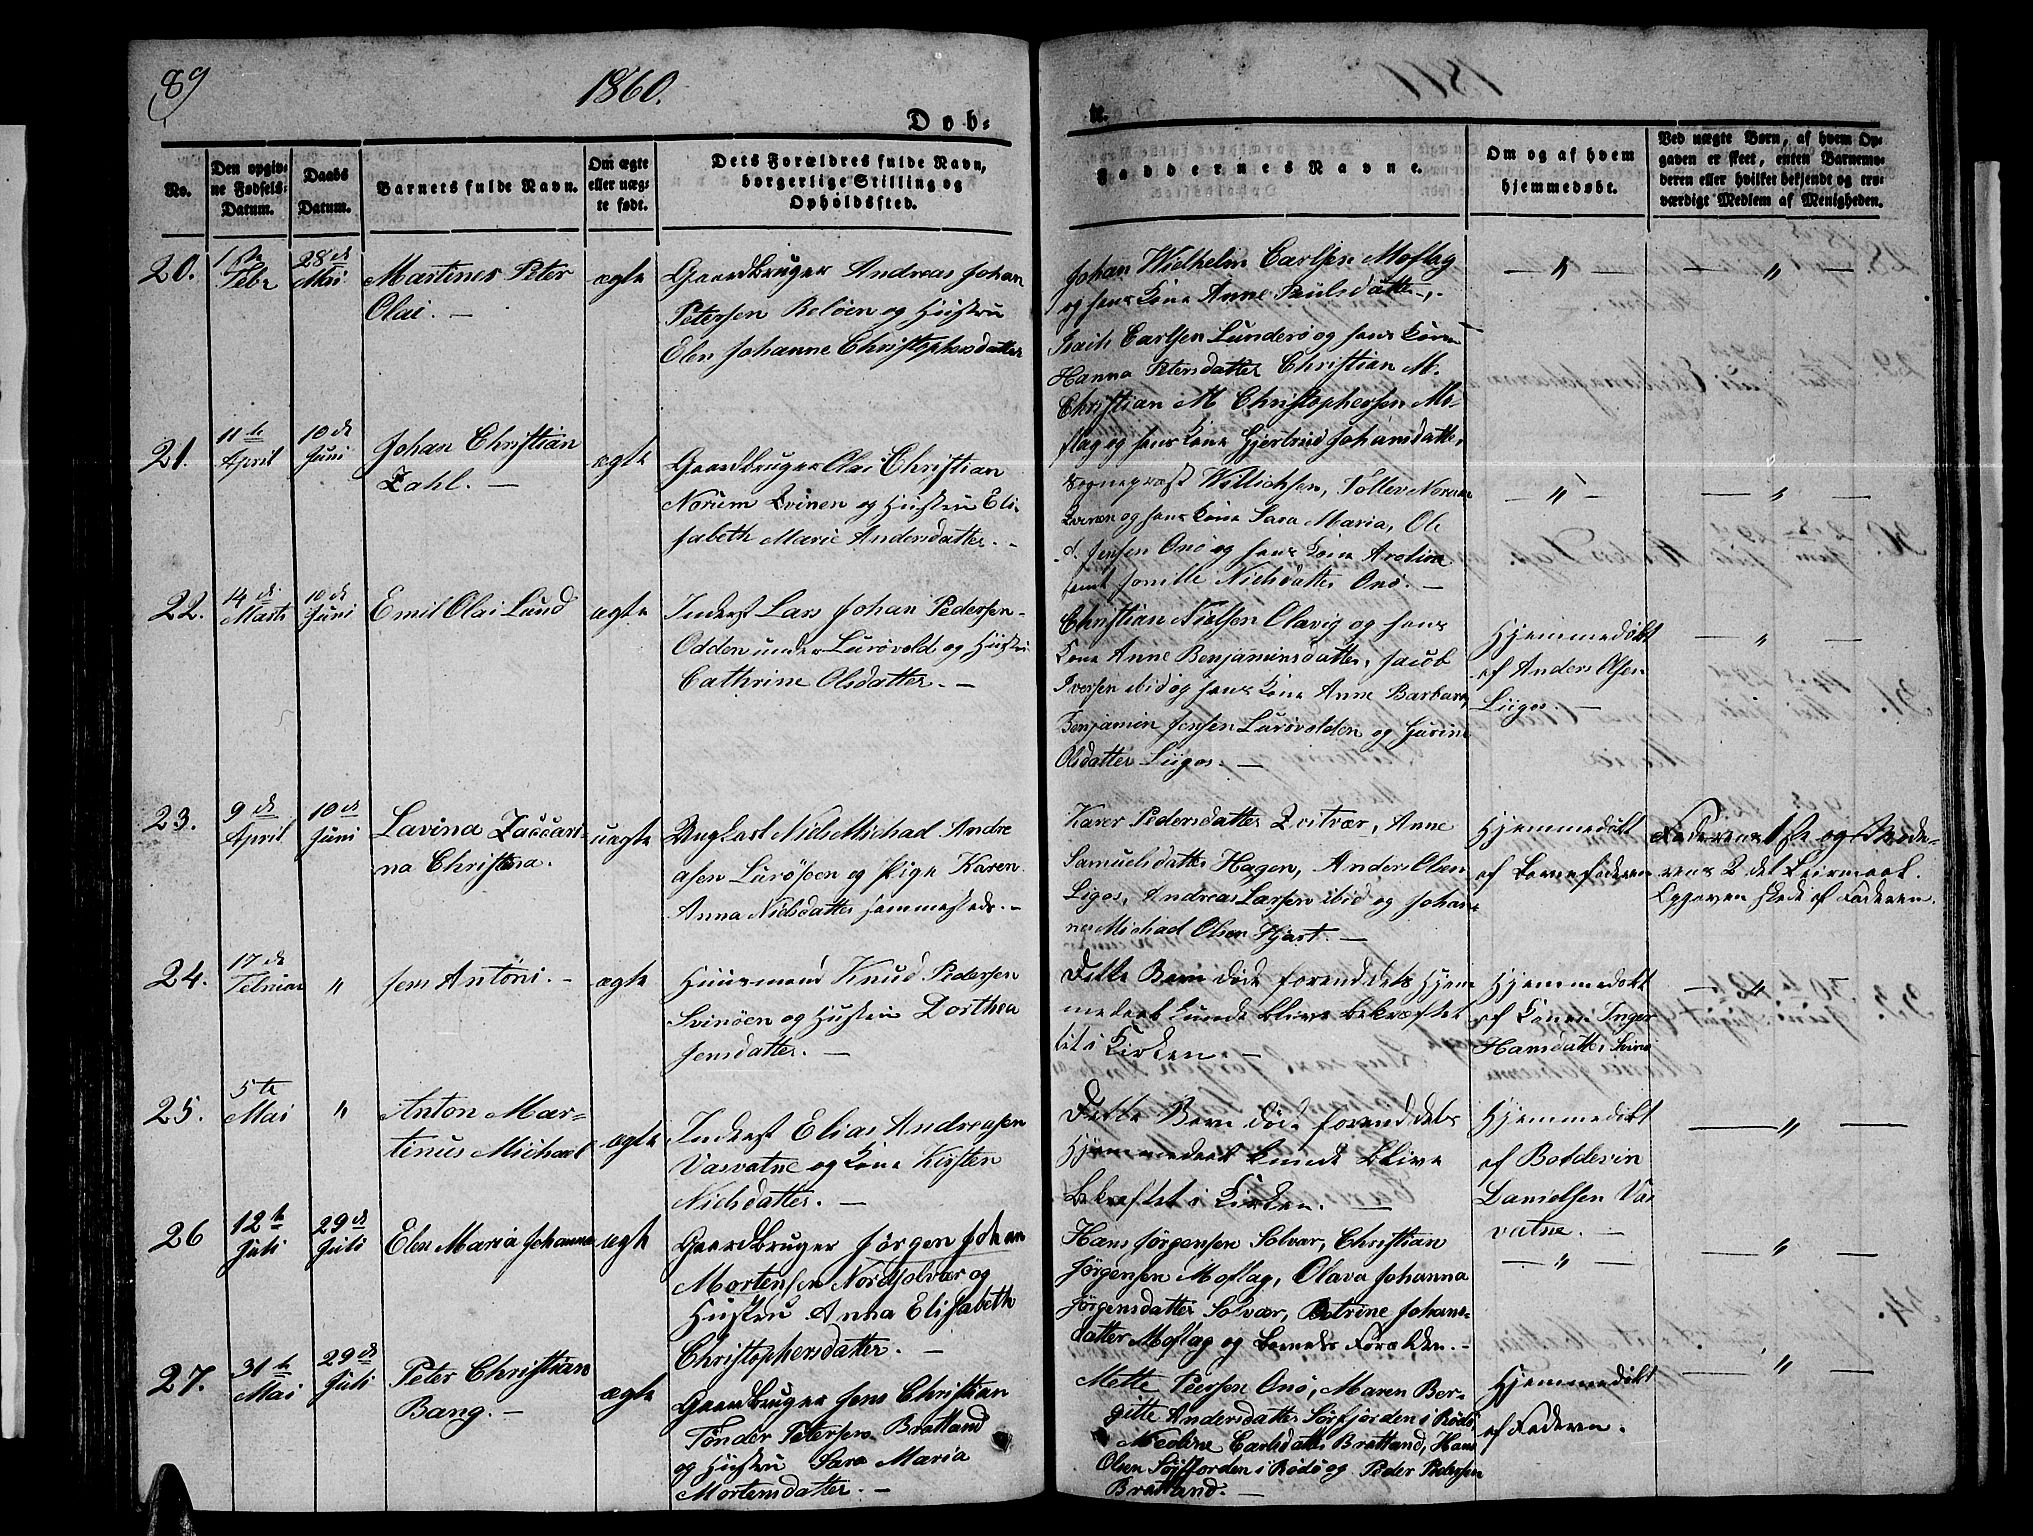 89
1860.
Dob=
te.
No.
Den opgiv=
ne Fødsels=
Datum.
Daabs
Datum.
Barnets fulde Navn.
Om ægte
eller uæg=
te født.
Dets Forældres fulde Navn,
borgerlige Stilling og
Opholdssted.
Faddernes Navne.
Om og af hvem
hjemmedøbt.
Ved uægte Børn, af hvem Op=
gaven er skeet, enten Barnemo=
deren eller hvilket bekjendt og tro=
værdigt Medlem af Menigheden.
20.
1ste
Febr
28de
Mai
Martines Peter
Olai. —
ægte
Gaardbruger Andreas Johan
Petersen Boløen og Hustru
Elen Johanne Christophersdatter
Johan Wielhelm Carlsen Moflag
og hans Kone Anne Paulsdatter,
Isach Carlsen Lunderø og hans Kone
Hanna Petersdatter Christian M.
Christian M Christophersen Mo=
flag og hans Kone Gjertrud Johansdatter,
— " —
— " —
21.
11te
April
10de
Juni
Johan Christian
Zahl. —
ægte
Gaardbruger Olai Christian
Norum Kvinen og Hustru Eli=
sabeth Marie Andersdatter. —
Sognepræst Willichsen, Tollev Norum
Kvinen og hans Kone Sara Maria, Ole
J. Jensen Onø og hans Kone Aroline
samt Jonille Nielsdatter Onø. —
— " —
— " —
22.
14de
Marts
10de
Juni
Emil Olai Lund
ægte
Inderst Lars Johan Pedersen
Odden under Lurøvold og Hustru
Cathrine Olsdatter. —
Christian Nielsen Olavig og hans
Kone Anne Benjaminsdatter, Jacob
Iversen ibid og hans Kone Anne Barbara,
Benjamin Jensen Lurøvolden og Gurine
Olsdatter Liigos. —
Hjemmedøbt
af Anders Olsen
Liigos. —
— " —
23.
9de
April
10de
Juni
Lavina Zaccari
na Christina.
uægte
Ungkarl Niels Michael Andre
asen Lurøsøen og Pige Karen
Anna Nielsdatter sammesteds. —
Karen Pedersdatter Kvitvær, Anne
Samuelsdatter Hagen, Anders Olsen
Ligos, Andreas Larsen ibid og Johan
nes Michael Olsen Hjart. —
Hjemmedøbt
af Barnefaderen
Faderens 1ste og Mode=
rens 2det Leiermaal.
Opgaven skede af Faderen.
24.
17de
Februar
"
Jens Antoni. —
ægte
Huusmand Knud Pedersen
Svinøen og Hustru Dorthea
Jensdatter. —
Dette Barn døde forend dets Hjem
medaab kunde blive bekræftet
i Kirken. —
Hjemmedøbt
af Konen Inger
Hansdatter Svinø
— " —
25.
5te
Mai
"
Anton Mar=
tinus Michael
ægte
Inderst Elias Andreasen
Vasvatne og Kone Kirsten
Nielsdatter. —
Dette Barn døde forend dets
Hjemmedaab kunde blive
bekræftet i Kirken. —
Hjemmedøbt
af Boldevin
Danielsen Vas
vatne. —
— " —
26
12te
Juli
29de
Juli
Elen Maria Johanna
ægte
Gaardbruger Jørgen Johan
Mortensen Nordsolvær og
Hustru Anna Elisabeth
Christophersdatter. —
Hans Jørgensen Solvær, Christian
Jørgensen Moflag, Olava Johanna
Jørgensdatter Solvær, Petrine Johans=
datter Moflag og Barnets Forældre. —
— " —
— " —
27.
31te
Mai
29de
Juli
Peter Christian
Bang. —
ægte
Gaardbruger Jens Christian
Tønder Petersen Bratland
og Hustru Sara Maria
Mortensdatter. —
Mette Peersen Onø, Maren Ber=
gitte Andersdatter Sørfjorden i Rødø
Nicoline Carlsdatter Bratland, Hans
Olsen Sørfjorden i Rødø og Peder Pedersen
Bratland. —
Hjemmedøbt
af Faderen.
— " —